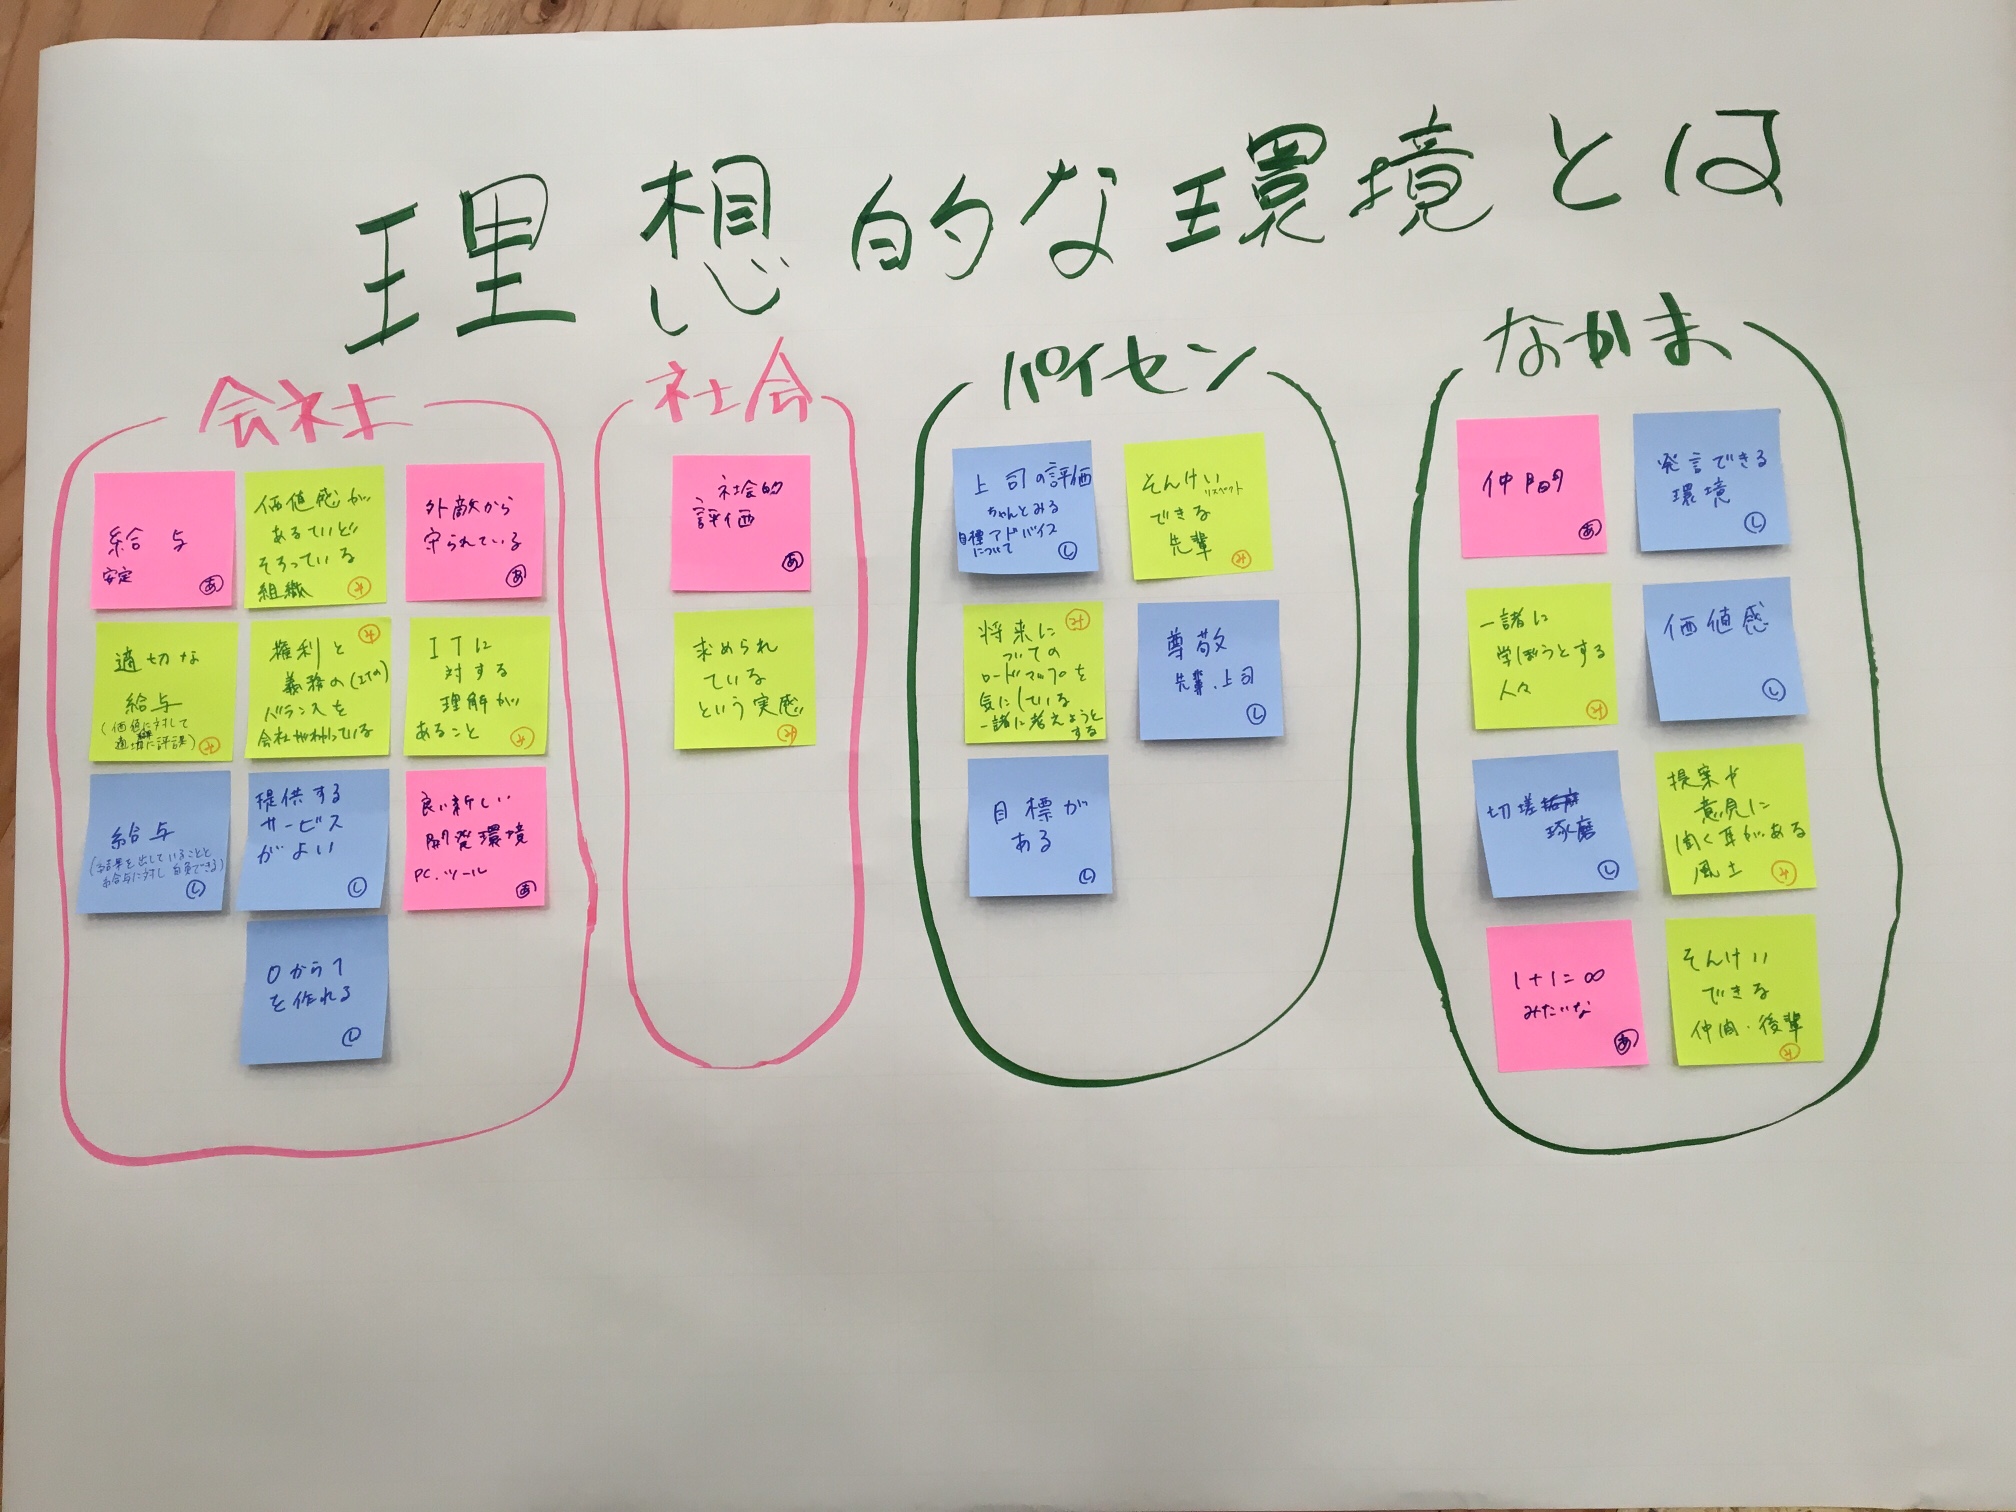 理想的な環境とは
会社
給与
安定
あ
価値感が
あるていど
そろっている
組織
み
外敵から
守られている
あ
適切な
給与
(価値に対して
適切に評課)
み
権利と
義務の(ITの)
バランスを
会社が知っている
み
ITに
対する
理解が
あること
み
給与
(結果を出していることと
給与に対し自負できる)
し
提供する
サービス
がよい
し
良い新しい
開発環境
PC.ツール
あ
0から1
を作れる
し
社会
社会的
評価
あ
求められ
ている
という実感
み
パイセン
上司の評価
ちゃんとみる
目標アドバイス
について
し
そんけい
リスペクト
できる
先輩
み
将来に
ついての
ロードマップを
気にしている
一諸に考えようと
する
み
尊敬
先輩、上司
し
目標が
ある
し
なかま
仲間
あ
発言できる
環境
し
一諸に
学ぼうとする
人々
み
価値感
し
切磋
琢磨
し
提案や
意見に
聞く耳がある
風土
み
1+1=∞
みたいな
あ
そんけい
できる
仲間・後輩
み